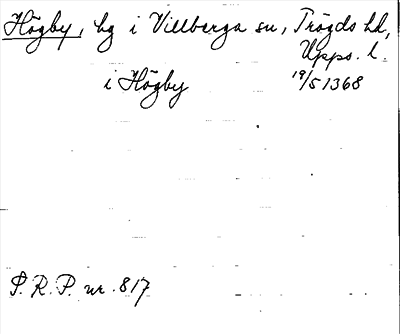 Högby, by i Villberga sn, Trögds hd,
Upps. l.
i Högby 19/5 1368
S.R.P. nr. 817